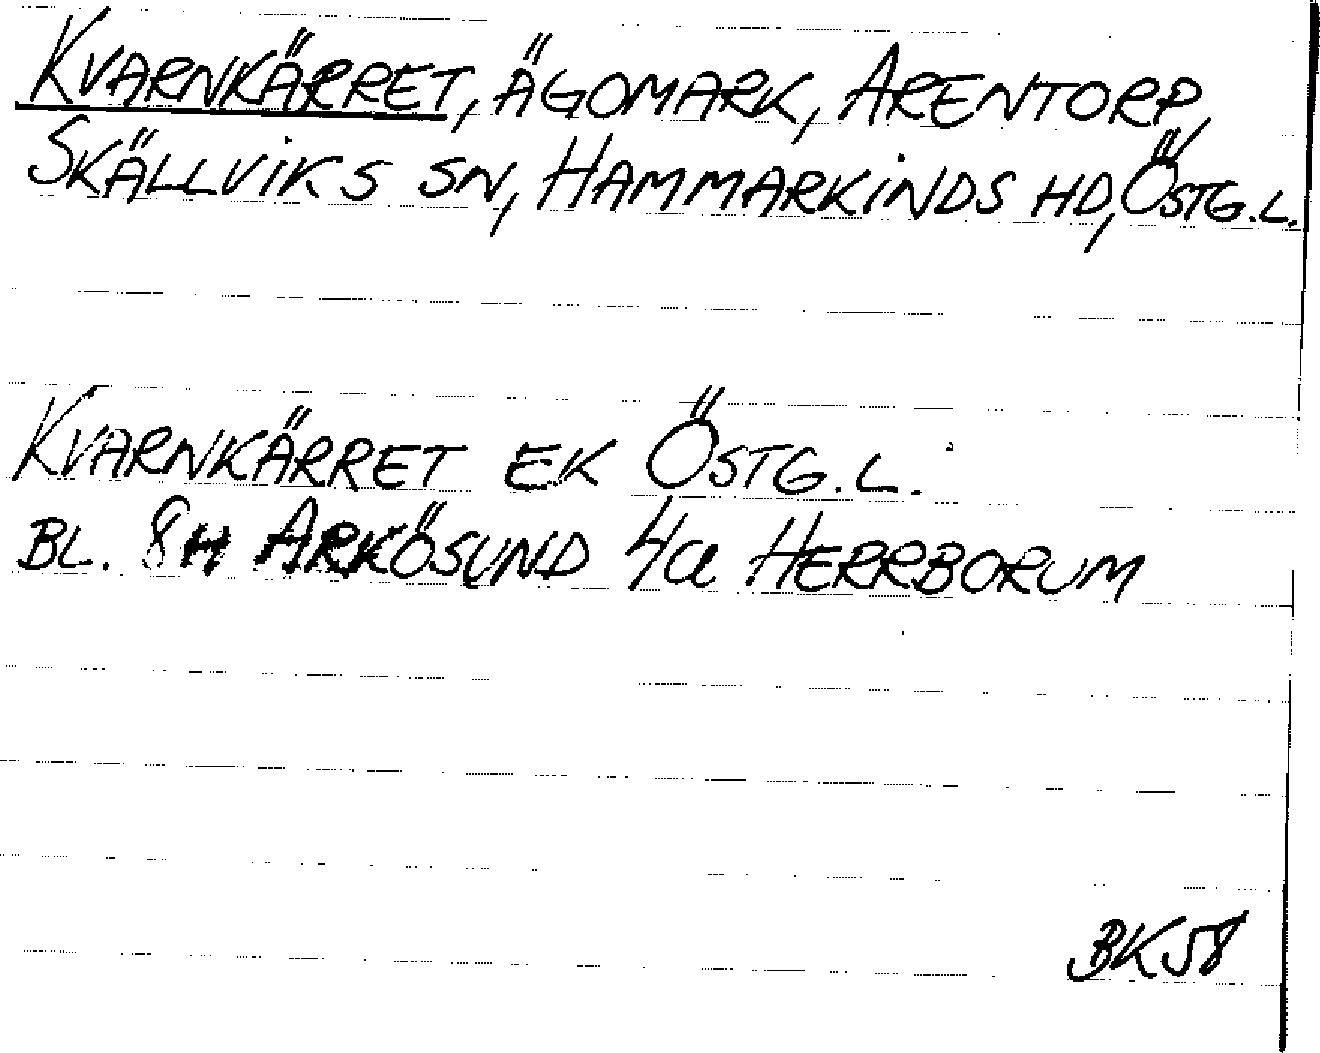 KVARNKÄRRET, ÄGOMARK, ARENTORP,
SKÄLLVIKS SN, HAMMARKINDS HD, ÖSTG.L.
KVARNKÄRRET EK ÖSTG.L.
BL. 8H ARKÖSUND 4a HERRBORUM
BK58